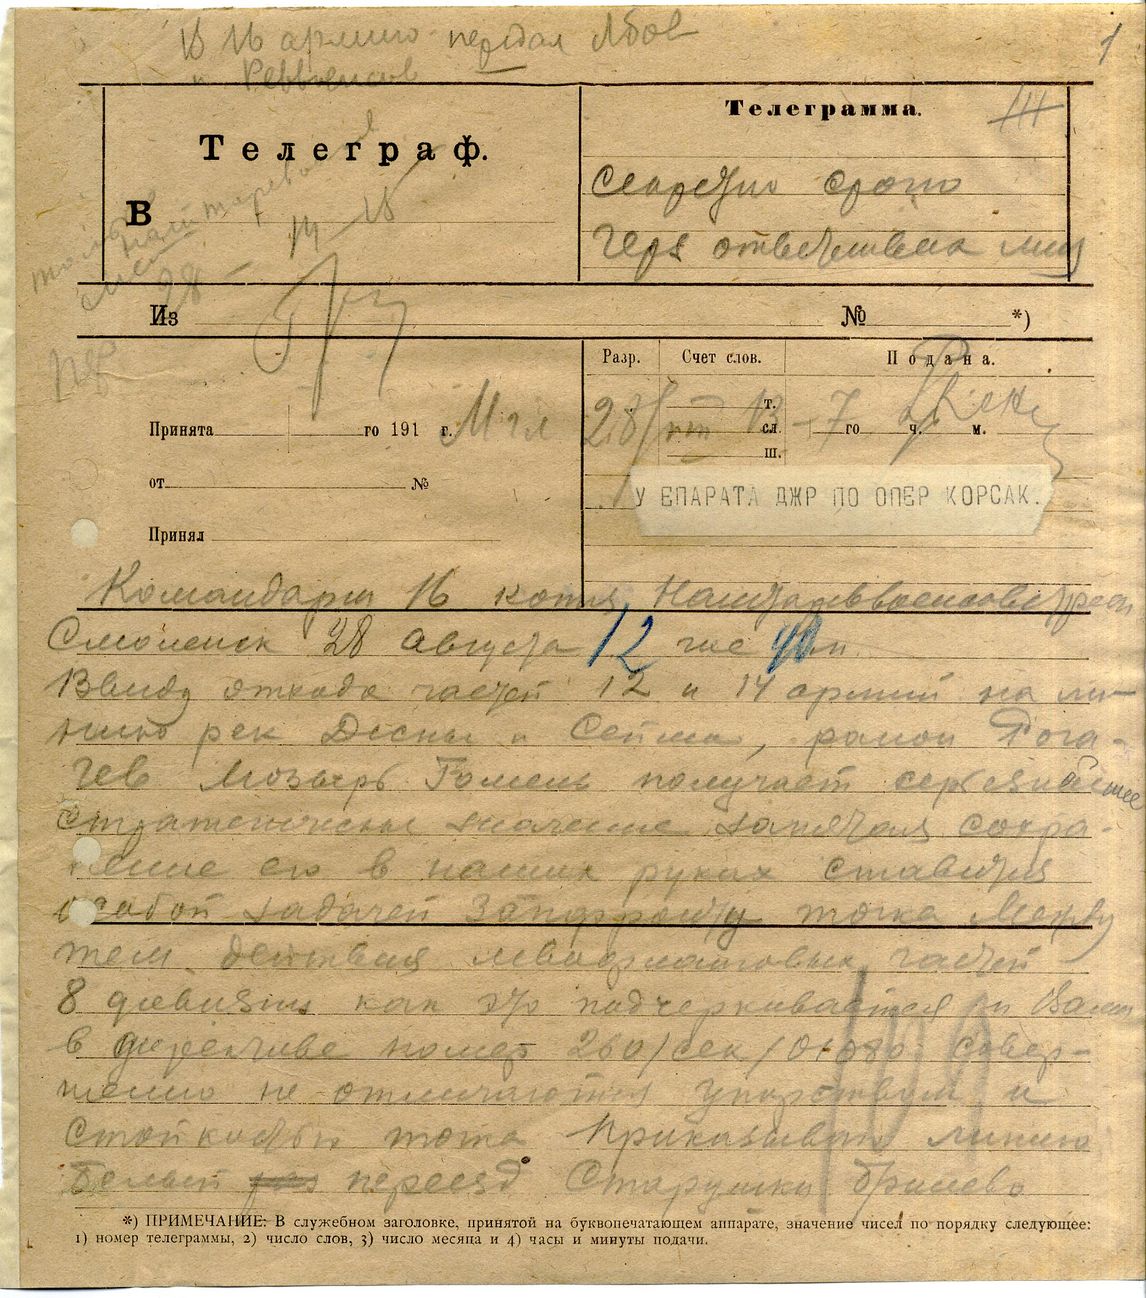 В 16 армию передал
Реввоенсов
1
Телеграф.
Телеграмма.
В
Секретно срочно
через ответственна лиц
14–15
28
Из № *)
Разр. Счет слов. Подана.
Принята го 191 г.
т.
сл.
ш.
го ч. м.
28 13–7
от №
У ЕПАРАТА ДЖР ПО ОПЕР КОРСАК.
Принял
Командарм 16 копия
Смоленск 28 августа 12 час 40 м
Ввиду отхода частей 12 и 14 армий на ли-
нию рек Десны и Сейма, район Рога-
чев Мозырь Гомель получает серьезнейшее
стратегическое значение запятая сохра-
нение его в наших руках ставится
особой задачей Запфронту точка Между
тем действия левофланговых частей
8 дивизии как это подчеркивается и Вами
в директиве номер 260/сек/01080 совер-
шенно не отличаются упорством и
стойкостью точка Приказываю линию
Белый переезд Старушки Брилево
*) ПРИМЕЧАНИЕ: В служебном заголовке, принятой на буквопечатающем аппарате, значение чисел по порядку следующее:
1) номер телеграммы, 2) число слов, 3) число месяца и 4) часы и минуты подачи.